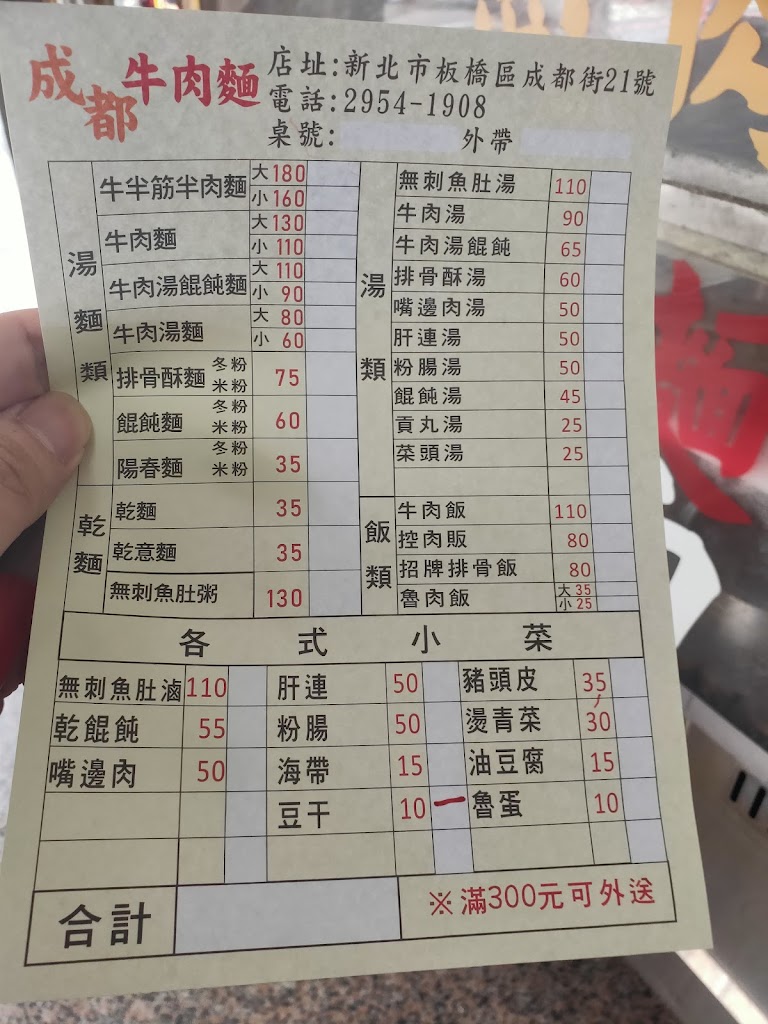 成都牛肉麵
店址:新北市板橋區成都街21號
電話:2954-1908
桌號: 外帶
湯麵類
牛半筋半肉麵 大180 小160
牛肉麵 大130 小110
牛肉湯餛飩麵 大110 小90
牛肉湯麵 大80 小60
排骨酥麵 冬粉 米粉 75
餛飩麵 冬粉 米粉 60
陽春麵 冬粉 米粉 35
乾麵
乾麵 35
乾意麵 35
無刺魚肚粥 130
湯類
無刺魚肚湯 110
牛肉湯 90
牛肉湯餛飩 65
排骨酥湯 60
嘴邊肉湯 50
肝連湯 50
粉腸湯 50
餛飩湯 45
貢丸湯 25
菜頭湯 25
飯類
牛肉飯 110
控肉販 80
招牌排骨飯 80
魯肉飯 大35 小25
各式小菜
無刺魚肚滷 110 肝連 50 豬頭皮 35
乾餛飩 55 粉腸 50 燙青菜 30
嘴邊肉 50 海帶 15 油豆腐 15
豆干 10 一 魯蛋 10
合計 ※滿300元可外送